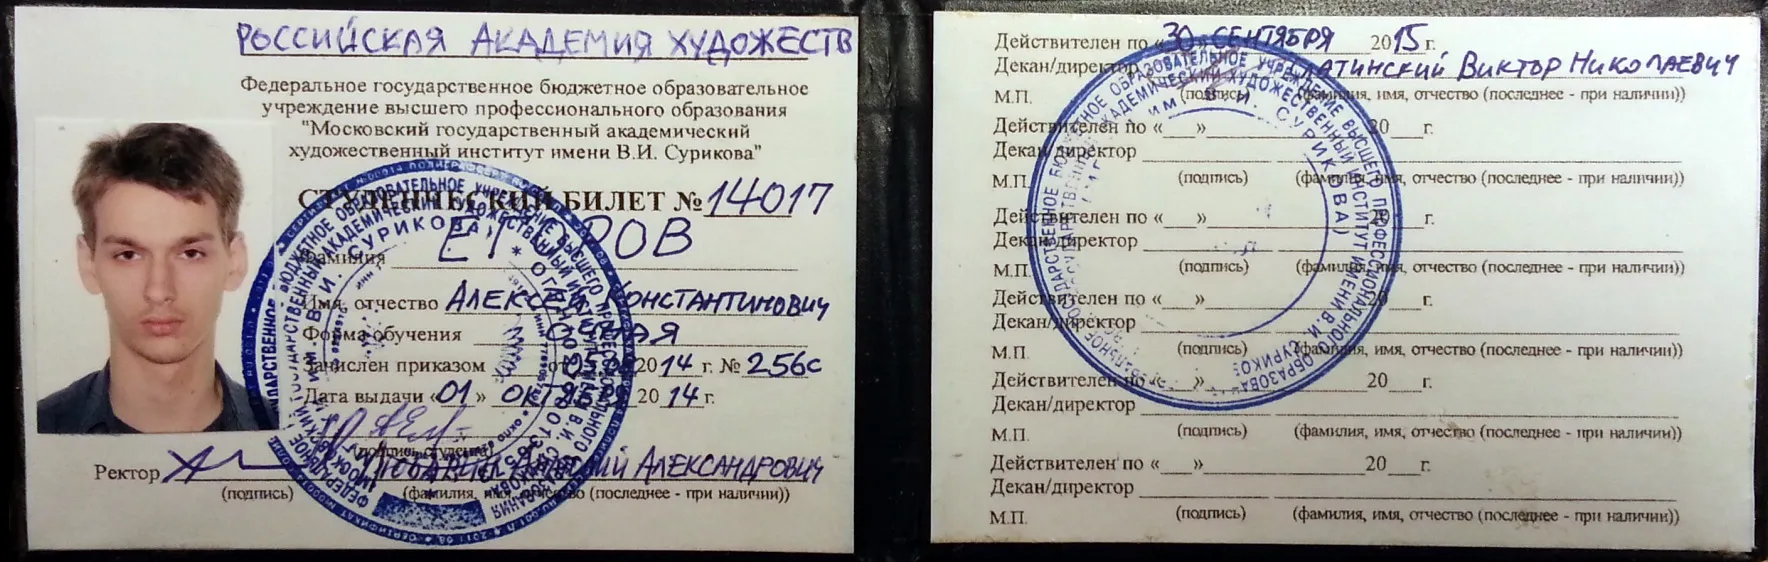 РОССИЙСКАЯ АКАДЕМИЯ ХУДОЖЕСТВ
Федеральное государственное бюджетное образовательное
учреждение высшего профессионального образования
"Московский государственный академический
художественный институт имени В.И. Сурикова"
СТУДЕНЧЕСКИЙ БИЛЕТ № 14017
Фамилия
Имя, отчество АЛЕКСЕЙ КОНСТАНТИНОВИЧ
Форма обучения ОЧНАЯ
Зачислен приказом от 05.08 2014 г. № 256с
Дата выдачи «01» ОКТЯБРЯ 2014 г.
(подпись студента)
Ректор АНАТОЛИЙ АЛЕКСАНДРОВИЧ
(подпись) (фамилия, имя, отчество (последнее - при наличии))
Действителен по «30» СЕНТЯБРЯ 2015 г.
Декан/директор ВИКТОР НИКОЛАЕВИЧ
М.П. (подпись) (фамилия, имя, отчество (последнее - при наличии))
Действителен по «___» 20___г.
Декан/директор
М.П. (подпись) (фамилия, имя, отчество (последнее - при наличии))
Действителен по «___» 20___г.
Декан/директор
М.П. (подпись) (фамилия, имя, отчество (последнее - при наличии))
Действителен по «___» 20___г.
Декан/директор
М.П. (подпись) (фамилия, имя, отчество (последнее - при наличии))
Действителен по «___» 20___г.
Декан/директор
М.П. (подпись) (фамилия, имя, отчество (последнее - при наличии))
Действителен по «___» 20___г.
Декан/директор
М.П. (подпись) (фамилия, имя, отчество (последнее - при наличии))